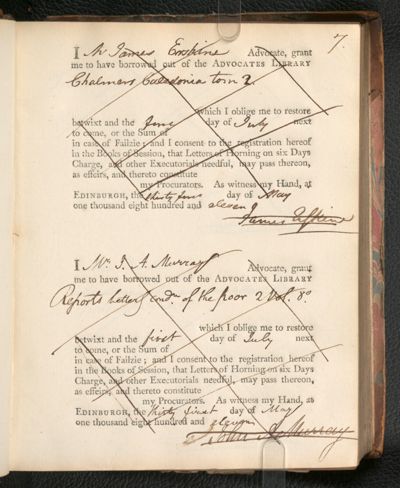 7.
I Mr James Erskine Advocate, grant
me to have borrowed out of the ADVOCATES LIBRARY
Chalmers Caledonia tom 2.
which I oblige me to restore
betwixt and the first day of July next
to come, or the Sum of
in case of Failzie; and I consent to the registration hereof
in the Books of Session, that Letters of Horning on six Days
Charge, and other Executorials needful, may pass thereon,
as effeirs, and thereto constitute
my Procurators. As witness my Hand, at
EDINBURGH, the thirty first day of May
one thousand eight hundred and eleven
James Erskine
I Mr. J. A. Murray Advocate, grant
me to have borrowed out of the ADVOCATES LIBRARY
Reports Letters cond.n of the poor 2 vol. 8o
which I oblige me to restore
betwixt and the first day of July next
to come, or the Sum of
in case of Failzie; and I consent to the registration hereof
in the Books of Session, that Letters of Horning on six Days
Charge, and other Executorials needful, may pass thereon,
as effeirs, and thereto constitute
my Procurators. As witness my Hand, at
EDINBURGH, the thirty first day of May
one thousand eight hundred and eleven
John A. Murray